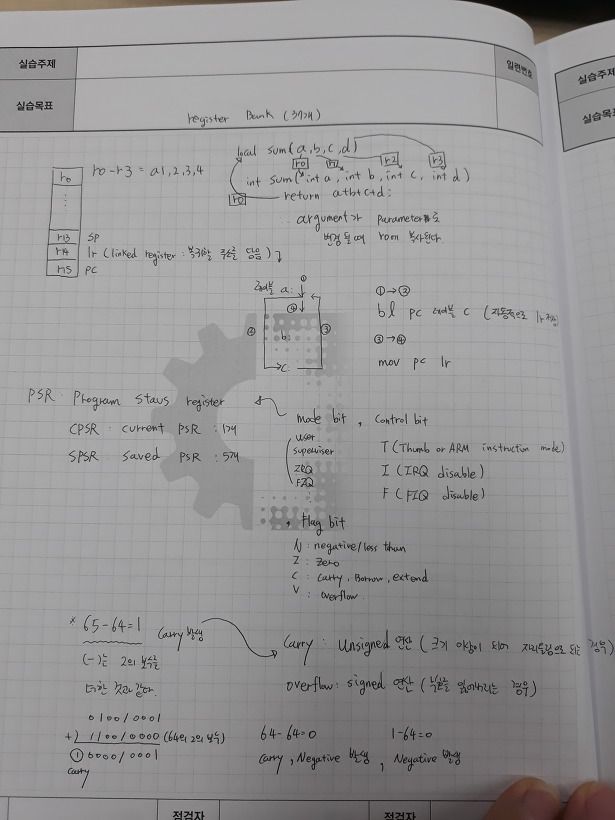 실습주제
일련번호
실습주제
실습목표
실습목표
register Bank (37개)
local sum(a,b,c,d)
r0 r1 r2 r3
int sum(int a, int b, int c, int d)
r0 return a+b+c+d;
argument가 parameter로
변경 될 때 rom 복사된다.
r0 r0-r3 = a1,2,3,4
r13 SP
r14 lr (linked register : 복귀할 주소를 담음)
r15 PC
레이블 a:
①
④
② b: ③
C:
①→②
bl pc 레이블 c (자동적으로 lr 저장)
③→④
mov pc lr
PSR: Program staus register
CPSR : current PSR : 1개
SPSR : saved PSR : 5개
mode bit, Control bit
user
supervisor
IRQ
FIQ
T (Thumb or ARM instruction mode)
I (IRQ disable)
F (FIQ disable)
Flag bit
N : negative/less than
Z : Zero
C : Carry, Borrow, extend
V : overflow
* 65-64=1 Carry 발생
(-)는 2의 보수를
더한 것과 같다.
0100/0001
+) 1100/0000 (64의 2의 보수)
① 0000/0001
carry
Carry : Unsigned 연산 (크기 이상이 되어 자리올림으로 되는 경우)
overflow : signed 연산 (부호를 잃어버리는 경우)
64-64=0 1-64=0
Carry, Negative 발생, Negative 발생
점검자 점검자